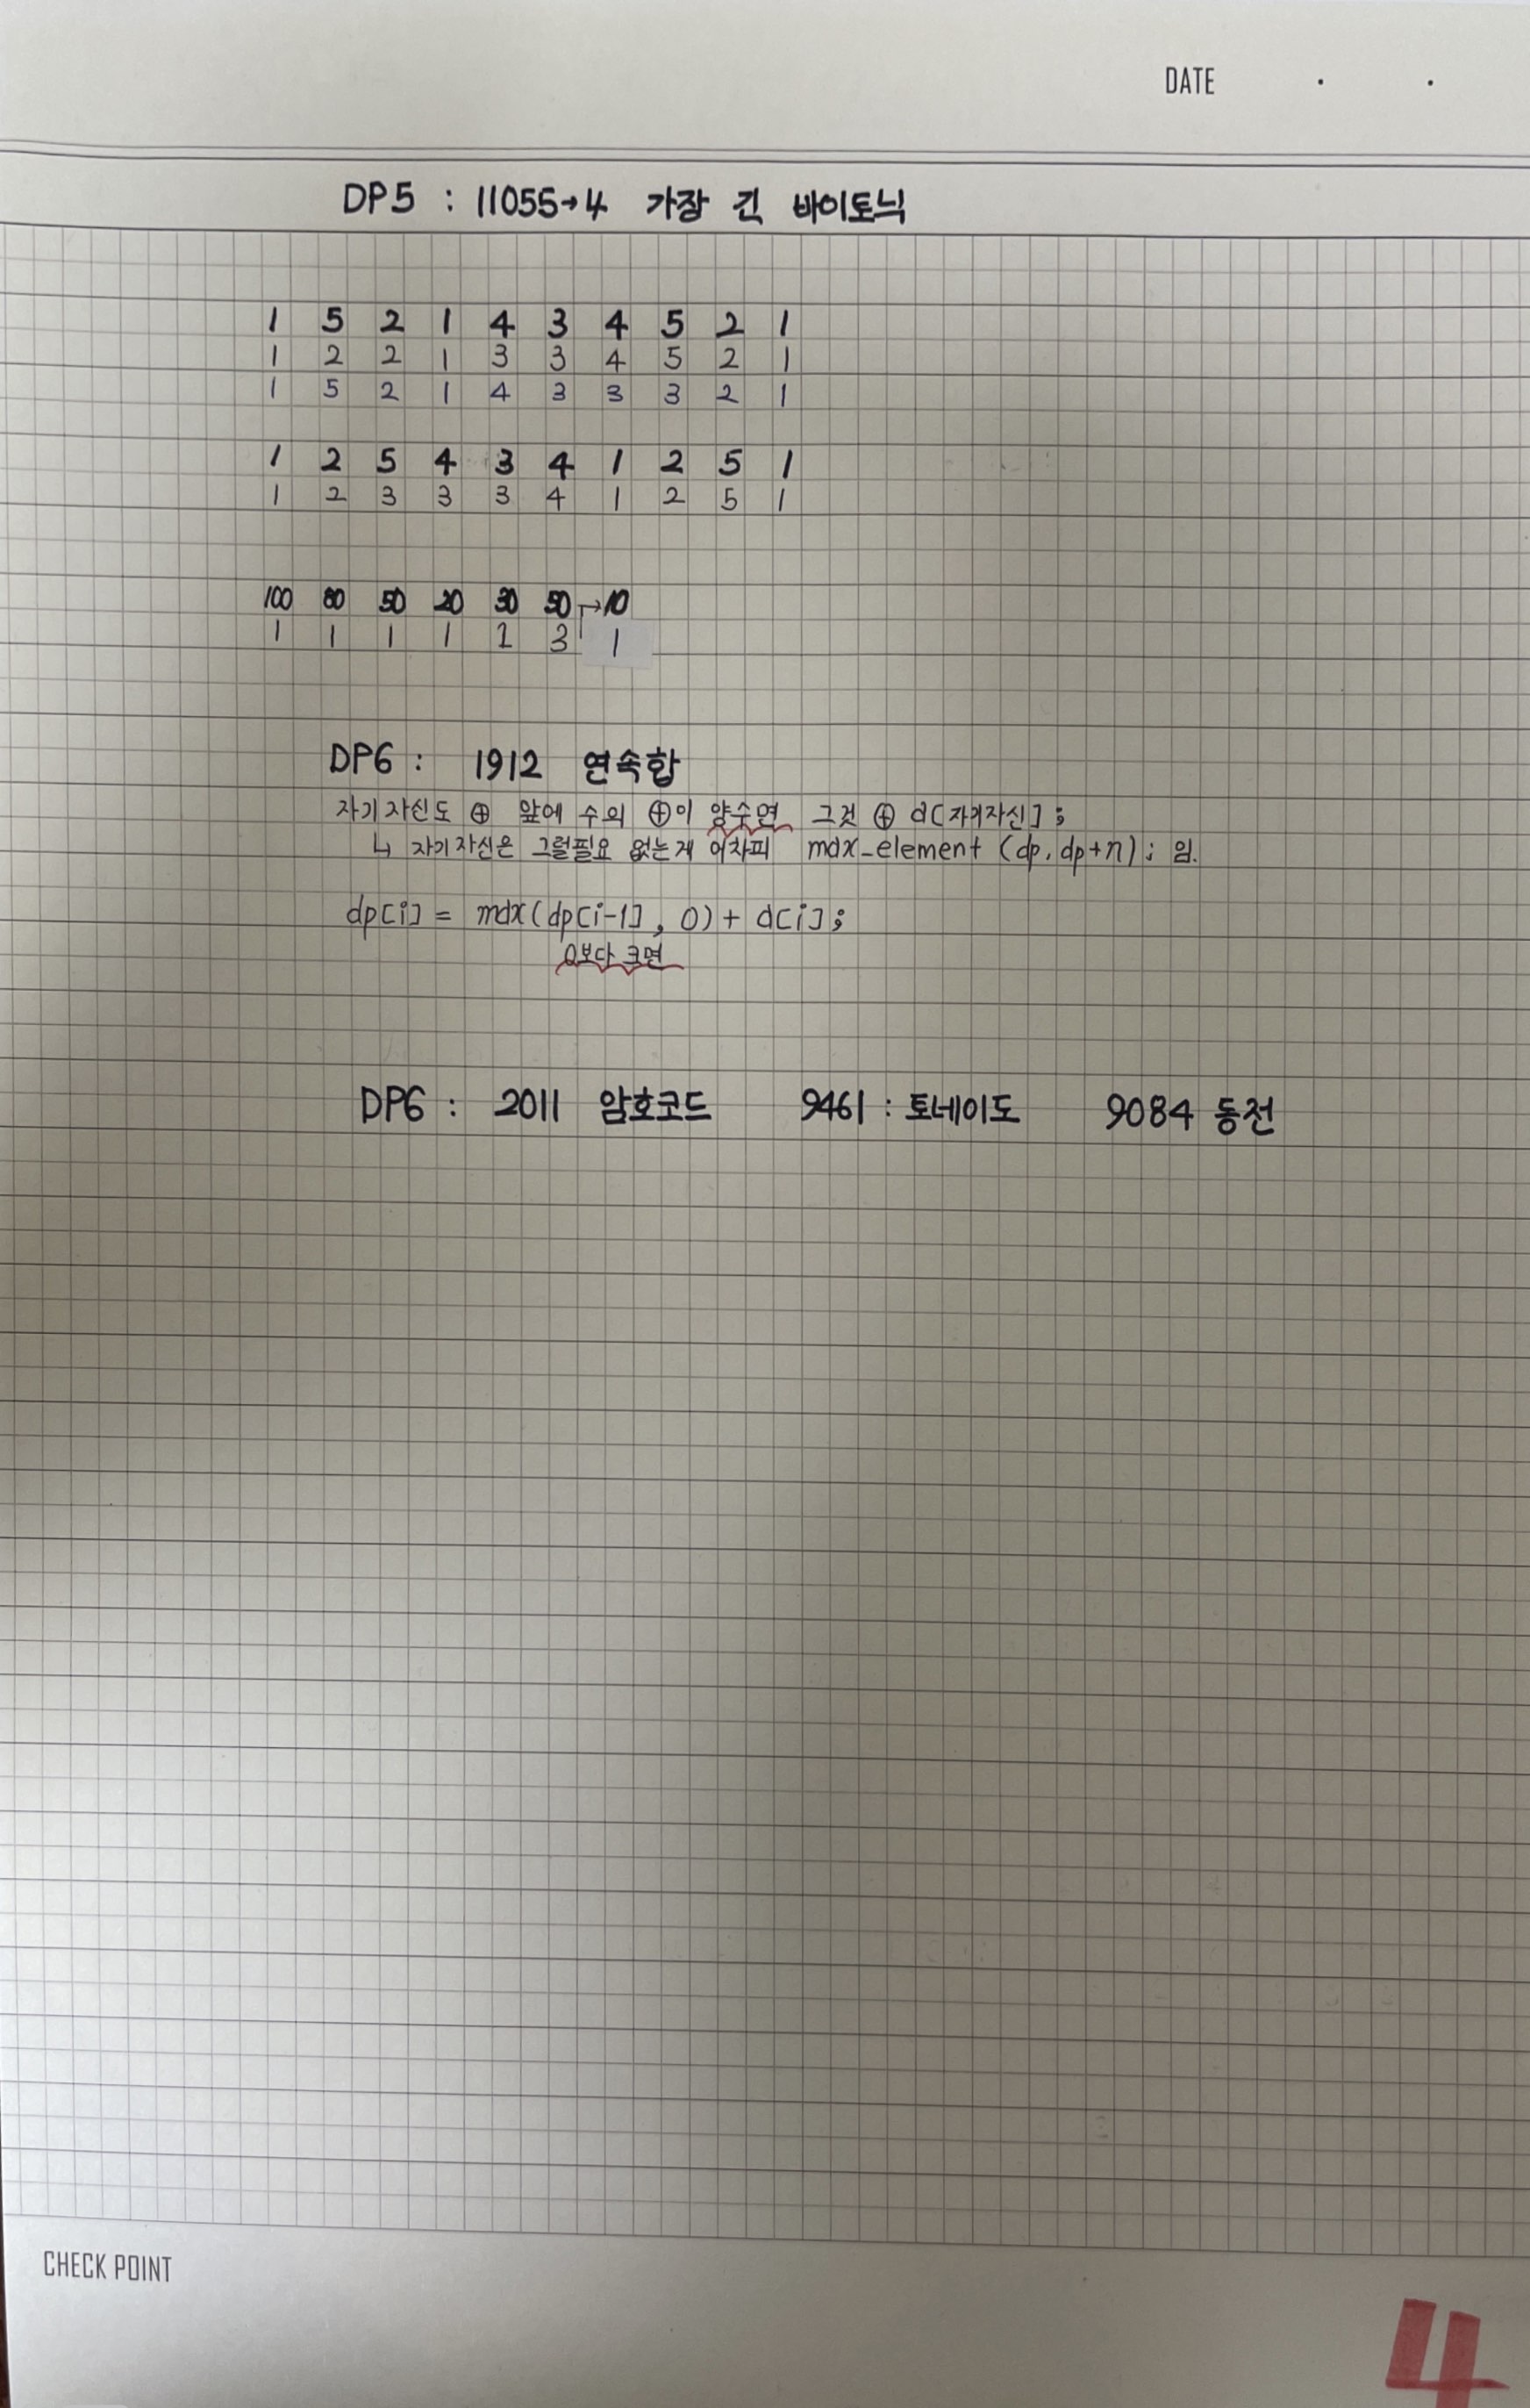 DATE . .
DP5 : 11055→4 가장 긴 바이토닉
1 5 2 1 4 3 4 5 2 1
1 2 2 1 3 3 4 5 2 1
1 5 2 1 4 3 3 3 2 1
1 2 5 4 3 4 1 2 5 1
1 2 3 3 3 4 1 2 5 1
100 80 50 20 30 50 →10
1 1 1 1 2 3 1
DP6 : 1912 연속합
자기 자신도 ⊕ 앞에 수의 ⊕이 양수면 그것 ⊕ a[자기자신];
↳ 자기 자신은 그럴필요 없는게 어차피 max_element (dp, dp+n); 임.
dp[i] = max(dp[i-1], 0) + a[i];
0보다 크면
DP6 : 2011 암호코드 9461 : 토네이도 9084 동전
CHECK POINT
4